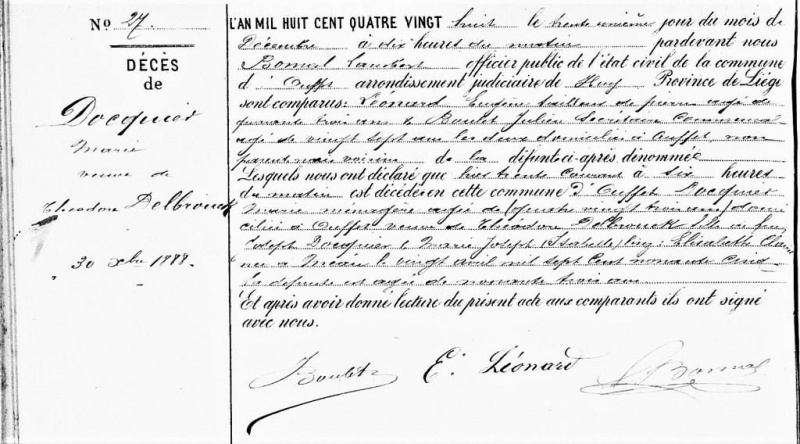 No 27.
DÉCÈS
de
Docquier
Marie
veuve de
Théodore Delbrouck
30 Xbre 1888.
L'AN MIL HUIT CENT QUATRE VINGT huit le trente unième jour du mois de
Décembre à dix heures du matin pardevant nous
Bonmal Lambert officier public de l'état civil de la commune
d' Ouffet arrondissement judiciaire de Huy Province de Liége
sont comparus: Léonard Eugène tailleur de pierre agé de
quarante trois ans & Boulet Julien Secrétaire Communal
agé de vingt sept ans les deux domiciliés à Ouffet, non
parent mais voisins de la défunte ci-après dénommée
Lesquels nous ont déclaré que hier trente Courant à six heures
du matin est décédée en cette commune d'Ouffet Docquier
Marie ménagère agée de (quatre vingt trois ans) domi
ciliée à Ouffet veuve de Théodore Delbrouck fille de feu
Joseph Docquier & Marie Joseph Elisabeth
née à Méan le vingt avril mil sept Cent nonante Cinq
la défunte est agée de nonante trois ans
Et après avoir donné lecture du présent acte aux comparants ils ont signé
avec nous.
J Boulet E. Léonard L Bonmal